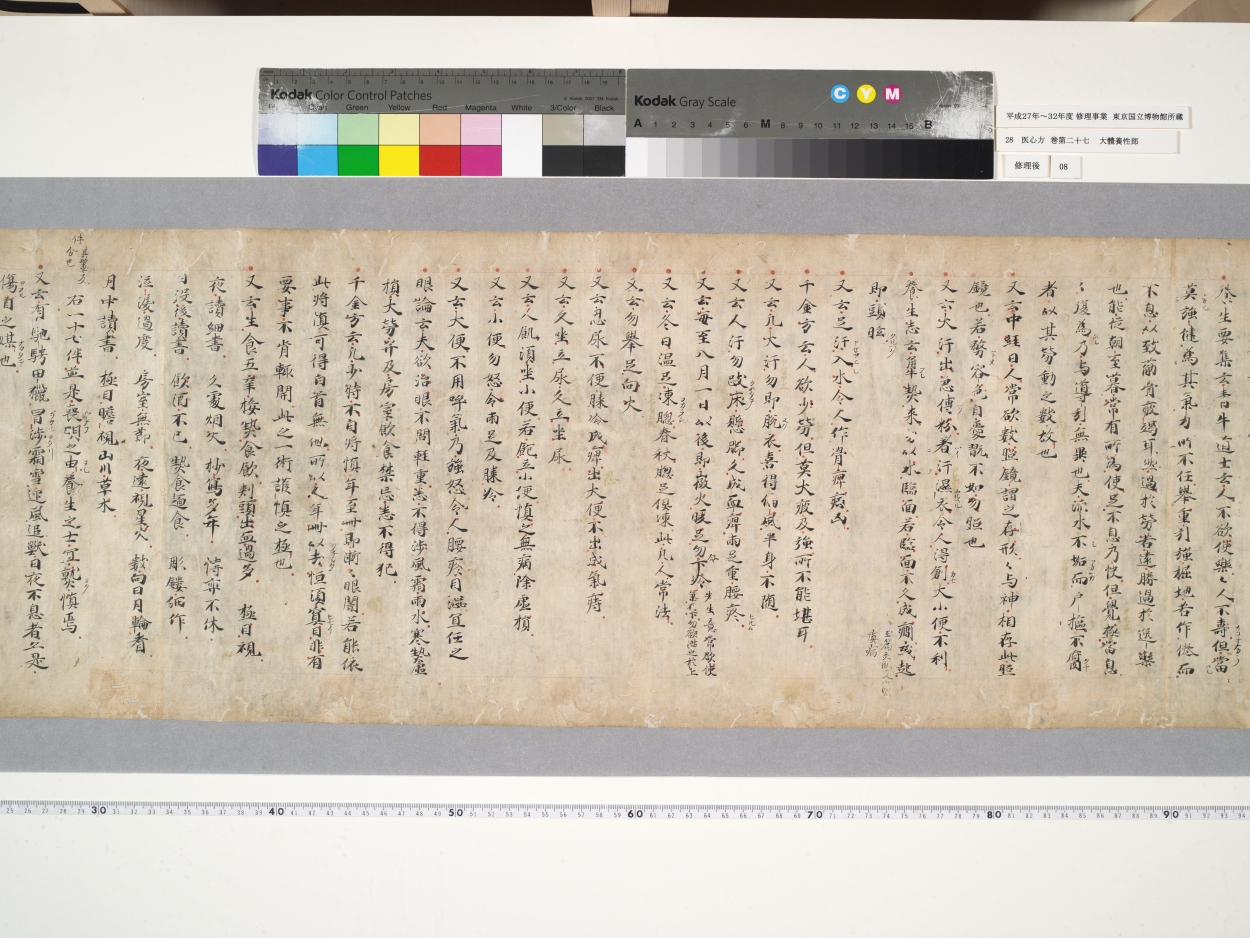 Kodak Color Control Patches
© Kodak, 2007 TM: Kodak
Cyan Green Yellow Red Magenta White 3/Color Black
Kodak Gray Scale
C Y M
A 1 2 3 4 5 6 M 8 9 10 11 12 13 14 15 B
平成27年~32年度 修理事業 東京国立博物館所蔵
28 医心方 巻第二十七 大體養性部
修理後 08
養生要集云青牛道士云人不欲使樂々人不壽但當
莫強健為其氣力所不任舉重引強掘地苦作倦而
不息以致筋骨疲竭耳然過於勞苦遠勝過於逸樂
也能從朝至暮常有所為使足不息乃快但覺極當息
々復為乃与導引無異也夫流水不垢而戸樞不腐
者以其勞動之數故也
又云中経曰人常欲數照鏡謂之存形々与神相存此照
鏡也若務容色自愛翫不如勿照也
又云大汗出急傅粉著汗濕衣令人得創大小便不利
養生志云集熱来以水臨面若臨面不久成癇或起
即頭眩
又云足汗入水令人作骨痺病凶
千金方云人欲少勞但莫大疲及強所不能堪耳
又云凡大汗勿即脱衣喜得偏風半身不随
又云人汗勿跂床懸脚久成血痺両足重腰疼
又云毎至八月一日以後即微火暖足勿下冷
又云冬日温足凍腦春秋腦足倶凍此凡人常法
又云勿舉足向火
又云忍尿不便膝冷成痺忍大便不出成氣痔
又云久坐立尿久立坐尿
又云凡飢須坐小便若飽立小便慎之無病除虚損
又云小便勿怒令両足及膝冷
又云大便不用呼氣乃強怒令人腰疼目澁宜任之
眼論云夫欲治眼不問軽重悉不得渉風霜雨水寒熱虚
損大勞并及房室飲食禁忌悉不得犯
千金方云凡少時不自将慎年至卌即漸々眼闇若能依
此将慎可得白首無他所以人年卌以去恒須瞑目非有
要事不肯輙開此之一術護慎之極也
又云生食五辛接熱食飲刺頭出血過多 極目視
夜讀細書 久處烟火 抄寫多年 博弈不休
日没後讀書 飲酒不已 熱食麺食 彫鏤細作
泣涙過度 房室無節 夜遠視星火 數向日月輪看
月中讀書 極目瞻視山川草木
右一十七件並是喪明之由養生之士宜熟慎焉
又云有馳騁田獵冒渉霜雪迎風追獣日夜不息者亦是
傷目之媒也
30 40 50 60 70 80 90